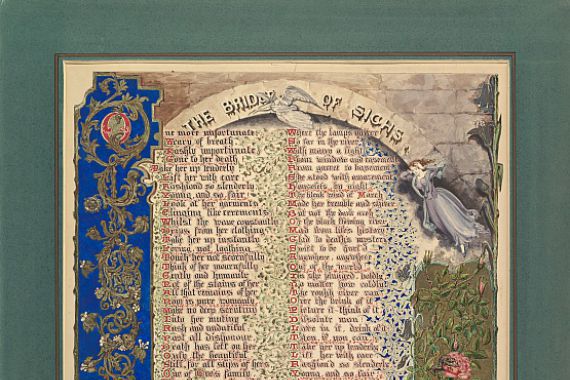 THE BRIDGE OF SIGHS
One more unfortunate
Weary of breath
Rashly importunate
Gone to her death
Take her up tenderly
Lift her with care
Fashion'd so slenderly
Young, and so fair
Look at her garments
Clinging like cerements
Whilst the wave constantly
Drips from her clothing
Take her up instantly
Loving, not loathing
Touch her not scornfully
Think of her mournfully
Gently and humanly
Not of the stains of her
All that remains of her
Now is pure womanly
Make no deep scrutiny
Into her mutiny
Rash and undutiful
Past all dishonour
Death has left on her
Only the beautiful
Still, for all slips of hers
One of Eve's family
Where the lamps quiver
So far in the river
With many a light
From window and casement
From garret to basement
She stood with amazement
Houseless by night
The bleak wind of March
Made her tremble and shiver
But not the dark arch
Or the black flowing river
Mad from life's history
Glad to death's mystery
Swift to be hurl'd
Anywhere, anywhere
Out of the world
In she plunged, boldly
No matter how coldly
The rough river ran
Over the brink of it
Picture it – think of it
Dissolute man
Lave in it, drink of it
Then, if you can
Take her up tenderly
Lift her with care
Fashion'd so slenderly
Young, and so fair